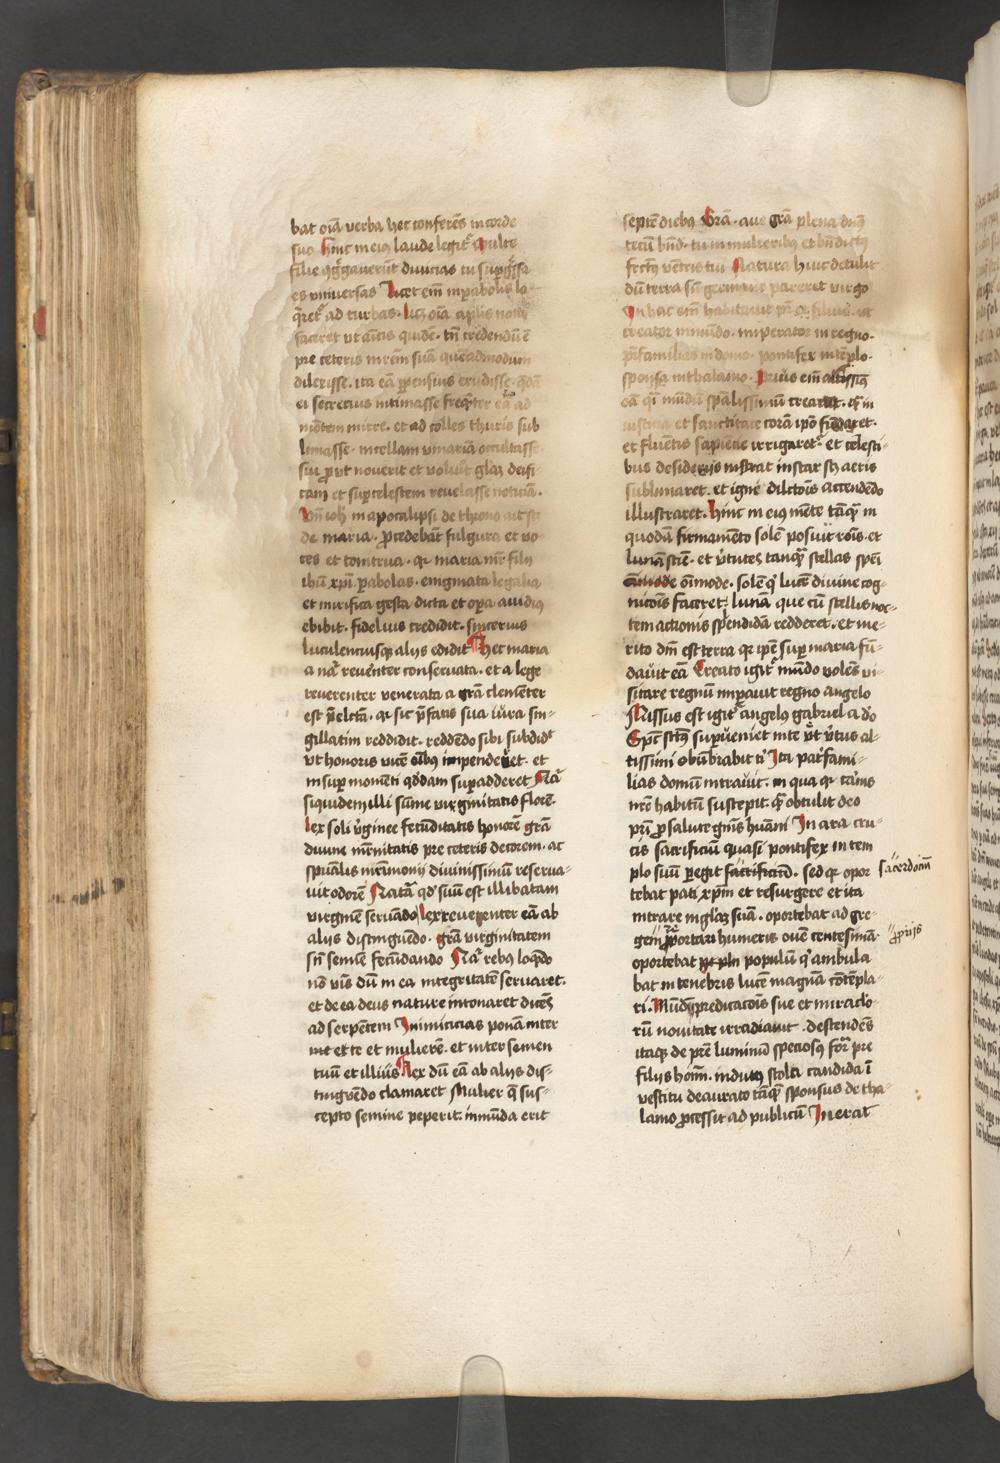 bat oīa verba hec conferēs in corde
suo Hinc in eius laude legit᷑ Multe
filie ɔg̃gauerūt diuicias tu sup̲g̃ssa
es vniuersas Licet em̄ in p̲abolis lo
q̄ret᷑ ad turbas. Licꝫ oīa ap̄lis nota
faceret vt aīcis quidē. tn̄ credendū ē
pre ceteris m̄rem suā queadmodum
dilexisse. ita eā p̲pensius erudisse. q̄dā
ei secrecius intimasse freq̄ter eā ad
mōtem mirre. et ad colles thuris sub
limasse. in cellam vinariā occultasse
siu ꝓut nouerit et voluit gl̄az deifi
cam et sup̲celestem reuelasse noticiā.
Vn̄ ioh̄ in apocalipsi de throno ait sc̄
de maria. ꝓcedebāt fulgura et vo
ces et tonitrua. qꝛ maria mr̄ filij
ihū xp̄i p̲abolas. enigmata legalia
et mirifica gesta dicta et oꝑa auidiꝰ
ebibit. fideliuis credidit. sincerius
luculenciusqꝫ alijs edidit Hec maria
a nat᷑ reuenter conseruata. et a lege
reuerenter venerata a grā clementer
est p̄elcta. qꝛ sic p̄fatis sua iura sin-
gillatim reddidit. reddēdo sibi subdidt
vt honoris vicē oībus inpenderet. et
insup̲ momēti qd̄dam sup̲adderet Nat᷑
siquidem illi sūme virginitatis florē.
lex soli v̓ginee fecūditatis honorē grā
diuine m̄rnitatis pre ceteris decorem. ac
sp̄ualis mr̄imonij diuinissimū reserua-
uit odorē Natā qd̓ suū est illibatam
virginē seruādo lex reuerenter eā ab
alijs distinguēdo. grā virginitatem
sn̄ semīe fecūdando Nat᷑ rebꝰ loq̄do
nō vīs dū in ea integritatē seruaret.
et de ea deus nature intonaret dicēs
ad serpētem Inimicicias ponā inter
inte et te et mulierē. et inter semen
tuū et illiuis Lex dū eā ab alijs dis-
tinguēdo clamaret Mulier q̄ sus-
cepto semine peperit. inmūda erit
septē diebꝰ Grā. aue grā plena dn̄s
tecū bn̄d. tu in mulieribꝰ et bn̄dictꝰ
fructꝰ vētris tui Natura huic detulit
dū terra sn̄ germinis pareret virgo
In hac em̄ habitauit pr̄ ⁊ filius. vt
creator in mūdo. imperator in regno.
pr̄familias in domo. pontifex in tēplo.
sponsa in thalamo. Prius em̄ altissimꝰ
eā qi mūdū sp̄alissimū creauit. q̄ in
iusticia et sanctitate corā ip̄o fundaret.
et fluentis sapiēcie irrigaret᷑ et celesti-
bus desiderijs instar sꝫ aeris
sublimaret. et igne dilctōis accendēdo
illustraret. Hinc in eiꝰ mēte tāq̄ in
quodā firmamēto solē posuit rōis. et
lunā sciē. et v̓tutes tanq̄ stellas speci
oīmode. solē q̓ lucē diuine cog-
nicōis faceret. lunā que cū stellis noc-
tem actionis splendida redderet. et me-
rito dn̄i est terra qꝛ ip̄e sup̲ maria fū-
dauit eā Creato igit᷑ mūdo volēs vi-
sitare regnū inp̲auit regno angelo
Missus est igit᷑ angelꝰ gabriel a do
Sp̄c sctꝰ sup̲ueniet in te v̓t v̓tus al-
tissimi obūbrabit t' Ita pat᷑fami-
lias domū intrauit. in qua qꝛ carnis
nr̄e habitū suscepit. q̄ obtulit deo
pr̄i ꝓ salute gn̄is hūani In ara cru-
cis sacrificiū quasi pontifex in tem
plo suū p̲egit sacrificiū. sed qꝛ opor sacerdociū
tebat pati xp̄m et resurgere et ita
intrare in gl̄az suā. oportebat ad gre-
gem ꝓportari humeris ouē centesimā. ꝓprijs
oportebat populū q̓ ambula
bat in tenebris lucē magnā cōtēpla-
ri. Mūdū p̲edicacōis sue et miraclo-
rū nouitate irradiauit. descendēs
itaqꝫ de pr̄e luminū speciosꝰ for̄ pre
filijs hoīm. indutꝰ stola candida ī
vestitu deaurato tāq̄ sponsus de tha-
lamo ꝓcessit ad publicū Inerat